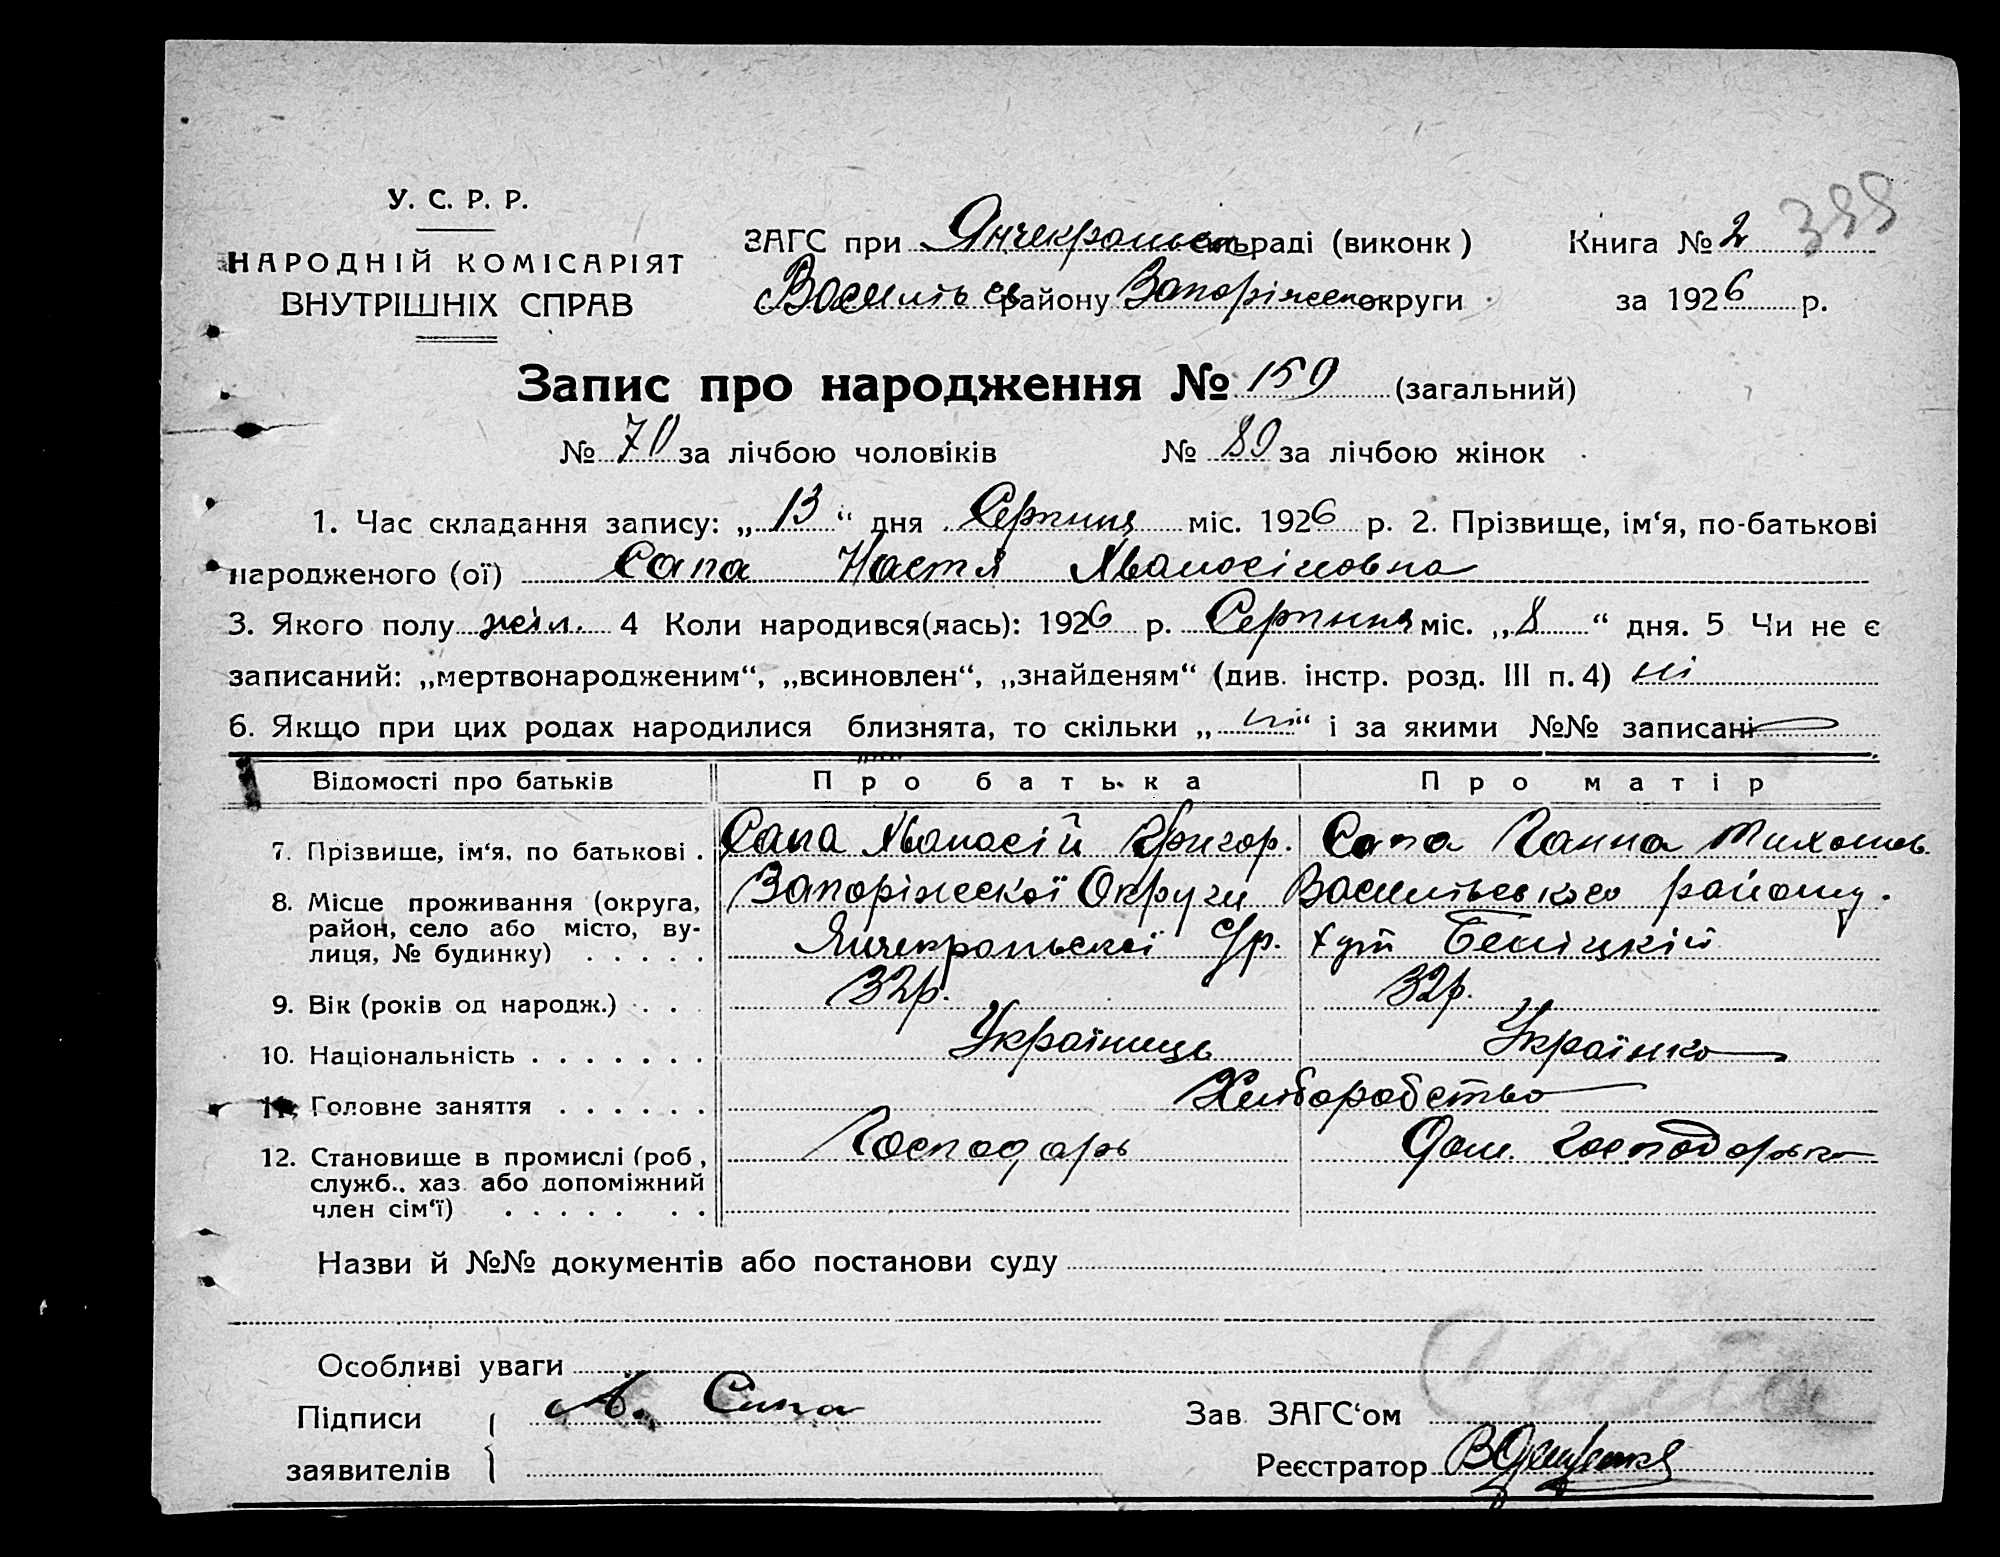 388
У. С. Р. Р.
НАРОДНІЙ КОМІСАРІЯТ
ВНУТРІШНІХ СПРАВ
ЗАГС при Янчекрацьск сільраді (виконк) Книга № 2
Васильєв району Запоріжськ округи за 1926 р.
Запис про народження № 159 (загальний)
№ 70 за лічбою чоловіків № 89 за лічбою жінок
1. Час складання запису: „13“ дня Серпня міс. 1926 р. 2. Прізвище, ім‘я, по-батькові
народженого (ої) Сапа Настя Хванасіновна
3. Якого полу жін. 4 Коли народився(лась): 1926 р. Серпня міс. „8“ дня. 5 Чи не є
записаний: „мертвонародженим“, „всиновлен“, „знайденям“ (див. інстр. розд. III п. 4) ні
6. Якщо при цих родах народилися близнята, то скільки „ні“ і за якими №№ записані
Відомості про батьків Про батька Про матір
7. Прізвище, ім‘я, по батькові . Сапа Хванасій Григор. Сапа Ганна Михайлів.
8. Місце проживання (округа, район, село або місто, вулиця, № будинку) . . . . . Запоріжської Округи Васильєвського району.
Янчекрацьскої С/р. хут Беліцкій
9. Вік (років од народж.) . . . 32р. 32р.
10. Національність . . . . . . . Українець Українка
11. Головне заняття . . . . . . Хліборобство
12. Становище в промислі (роб, служб., хаз. або допоміжний член сім‘ї) . . . . . . . Господарь Дом. Господарька
Назви й №№ документів або постанови суду
Особливі уваги
Підписи А. Сапа Зав ЗАГС‘ом Сапа
заявителів Реєстратор